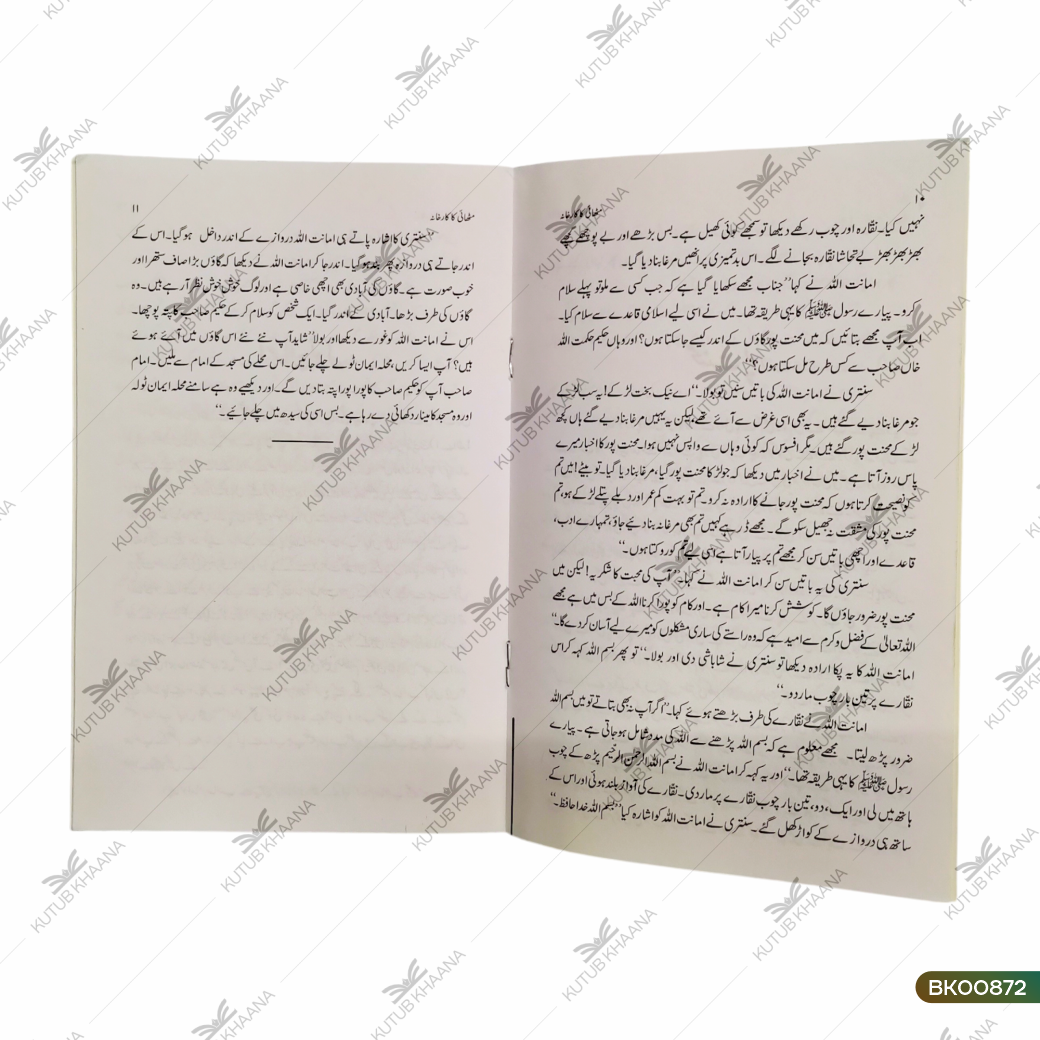 ۱۰
مٹھائی کا کارخانہ
نہیں کیا۔ نقارہ اور چوب رکھے دیکھا تو سمجھے کوئی کھیل ہے۔ بس بڑھے اور بے پوچھے گچھے
بھڑ بھڑ بھڑ بھڑ بے تحاشا نقارہ بجانے لگے۔ اس بدتمیزی پر انھیں مرغا بنا دیا گیا۔
امانت اللہ نے کہا ’’جناب مجھے سکھایا گیا ہے کہ جب کسی سے ملو تو پہلے سلام
کرو۔ پیارے رسول ﷺ کا یہی طریقہ تھا۔ میں نے اسی لیے اسلامی قاعدے سے سلام کیا۔
اب آپ مجھے بتائیں کہ میں محنت پور گاؤں کے اندر کیسے جا سکتا ہوں؟ اور وہاں حکیم حکمت اللہ
خاں صاحب سے کس طرح مل سکتا ہوں؟‘‘
سنتری نے امانت اللہ کی باتیں سنیں تو بولا۔ ’’اے نیک بخت لڑکے! یہ سب لڑکے
جو مرغا بنا دیے گئے ہیں۔ یہ بھی اسی غرض سے آئے تھے لیکن یہ یہیں مرغا بنا دیے گئے ہاں کچھ
لڑکے محنت پور گئے ہیں۔ مگر افسوس کہ کوئی وہاں سے واپس نہیں ہوا۔ محنت پور کا اخبار میرے
پاس روز آتا ہے۔ میں نے اخبار میں دیکھا کہ جو لڑکا محنت پور گیا، مرغا بنا دیا گیا۔ تو بیٹے! میں تم
کو نصیحت کرتا ہوں کہ محنت پور جانے کا ارادہ نہ کرو۔ تم تو بہت کم عمر اور دبلے پتلے لڑکے ہو، تم
محنت پور کی مشقت نہ جھیل سکو گے۔ مجھے ڈر ہے کہیں تم بھی مرغا نہ بنا دیئے جاؤ، تمہارے ادب،
قاعدے اور اچھی باتیں سن کر مجھے تم پر پیار آتا ہے اسی لیے تم کو روکتا ہوں۔‘‘
سنتری کی یہ باتیں سن کر امانت اللہ نے کہا۔ ’’آپ کی محبت کا شکریہ! لیکن میں
محنت پور ضرور جاؤں گا۔ کوشش کرنا میرا کام ہے۔ اور کام کو پورا کرنا اللہ کے بس میں ہے مجھے
اللہ تعالیٰ کے فضل و کرم سے امید ہے کہ وہ راستے کی ساری مشکلوں کو میرے لیے آسان کر دے گا۔‘‘
امانت اللہ کا یہ پکا ارادہ دیکھا تو سنتری نے شاباشی دی اور بولا۔ ’’تو پھر بسم اللہ کہہ کر اس
نقارے پر تین بار چوب مار دو۔‘‘
امانت اللہ نے نقارے کی طرف بڑھتے ہوئے کہا۔ ’’اگر آپ نہ بھی بتاتے تو میں بسم اللہ
ضرور پڑھ لیتا۔ مجھے معلوم ہے کہ بسم اللہ پڑھنے سے اللہ کی مدد شامل ہو جاتی ہے۔ پیارے
رسول ﷺ کا یہی طریقہ تھا۔‘‘ اور یہ کہہ کر امانت اللہ نے بسم اللہ الرحمٰن الرحیم پڑھ کے چوب
ہاتھ میں لی اور ایک، دو، تین بار چوب نقارے پر مار دی۔ نقارے کی آواز بلند ہوئی اور اس کے
ساتھ ہی دروازے کے کواڑ کھل گئے۔ سنتری نے امانت اللہ کو اشارہ کیا ’’بسم اللہ خدا حافظ۔‘‘
مٹھائی کا کارخانہ
۱۱
سنتری کا اشارہ پاتے ہی امانت اللہ دروازے کے اندر داخل ہو گیا۔ اس کے
اندر جاتے ہی دروازہ پھر بند ہو گیا۔ اندر جا کر امانت اللہ نے دیکھا کہ گاؤں بڑا صاف ستھرا اور
خوب صورت ہے۔ گاؤں کی آبادی بھی اچھی خاصی ہے اور لوگ خوش خوش نظر آرہے ہیں۔ وہ
گاؤں کی طرف بڑھا۔ آبادی کے اندر گیا۔ ایک شخص کو سلام کر کے حکیم صاحب کا پتہ پوچھا۔
اس نے امانت اللہ کو غور سے دیکھا اور بولا ’’شاید آپ نئے نئے اس گاؤں میں آئے ہوئے
ہیں؟ آپ ایسا کریں، محلہ ایمان ٹولے چلے جائیں۔ اس محلے کی مسجد کے امام سے ملیں۔ امام
صاحب آپ کو حکیم صاحب کا پورا پورا پتہ بتا دیں گے۔ اور دیکھیے وہ ہے سامنے محلہ ایمان ٹولہ
اور وہ مسجد کا مینار دکھائی دے رہا ہے۔ بس اسی کی سیدھ میں چلے جائیے۔‘‘
KUTUB KHAANA
BK00872